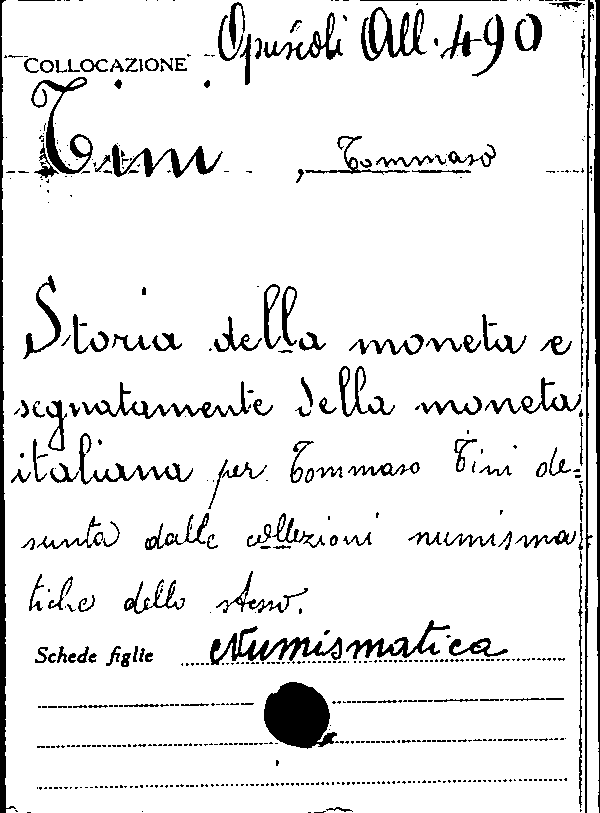 COLLOCAZIONE Opuscoli All. 490
Tini, Tommaso
Storia della moneta e
segnatamente della moneta
italiana per Tommaso Tini de=
sunta dalle collezioni numisma
tiche dello stesso.
Schede figlie Numismatica